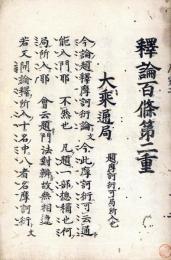 釋論百條第二重
大乘通局 題摩訶衍可局所入也
今論題釋摩訶衍論文今此摩訶衍可云通
能入門耶 不然也 凡題一部摠標也何
局所入耶 會云題門法對辨故無相違
若又開論釋所入十名中八者名摩訶衍文